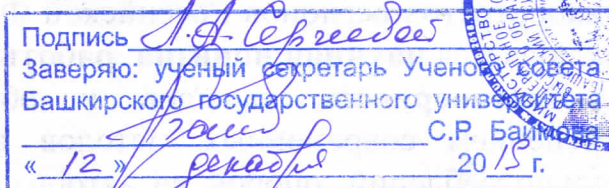 Подпись Л.А. Сергеевой
Заверяю: ученый секретарь Ученого совета
Башкирского государственного университета
С.Р. Баимова
« 12 » декабря 2015 г.